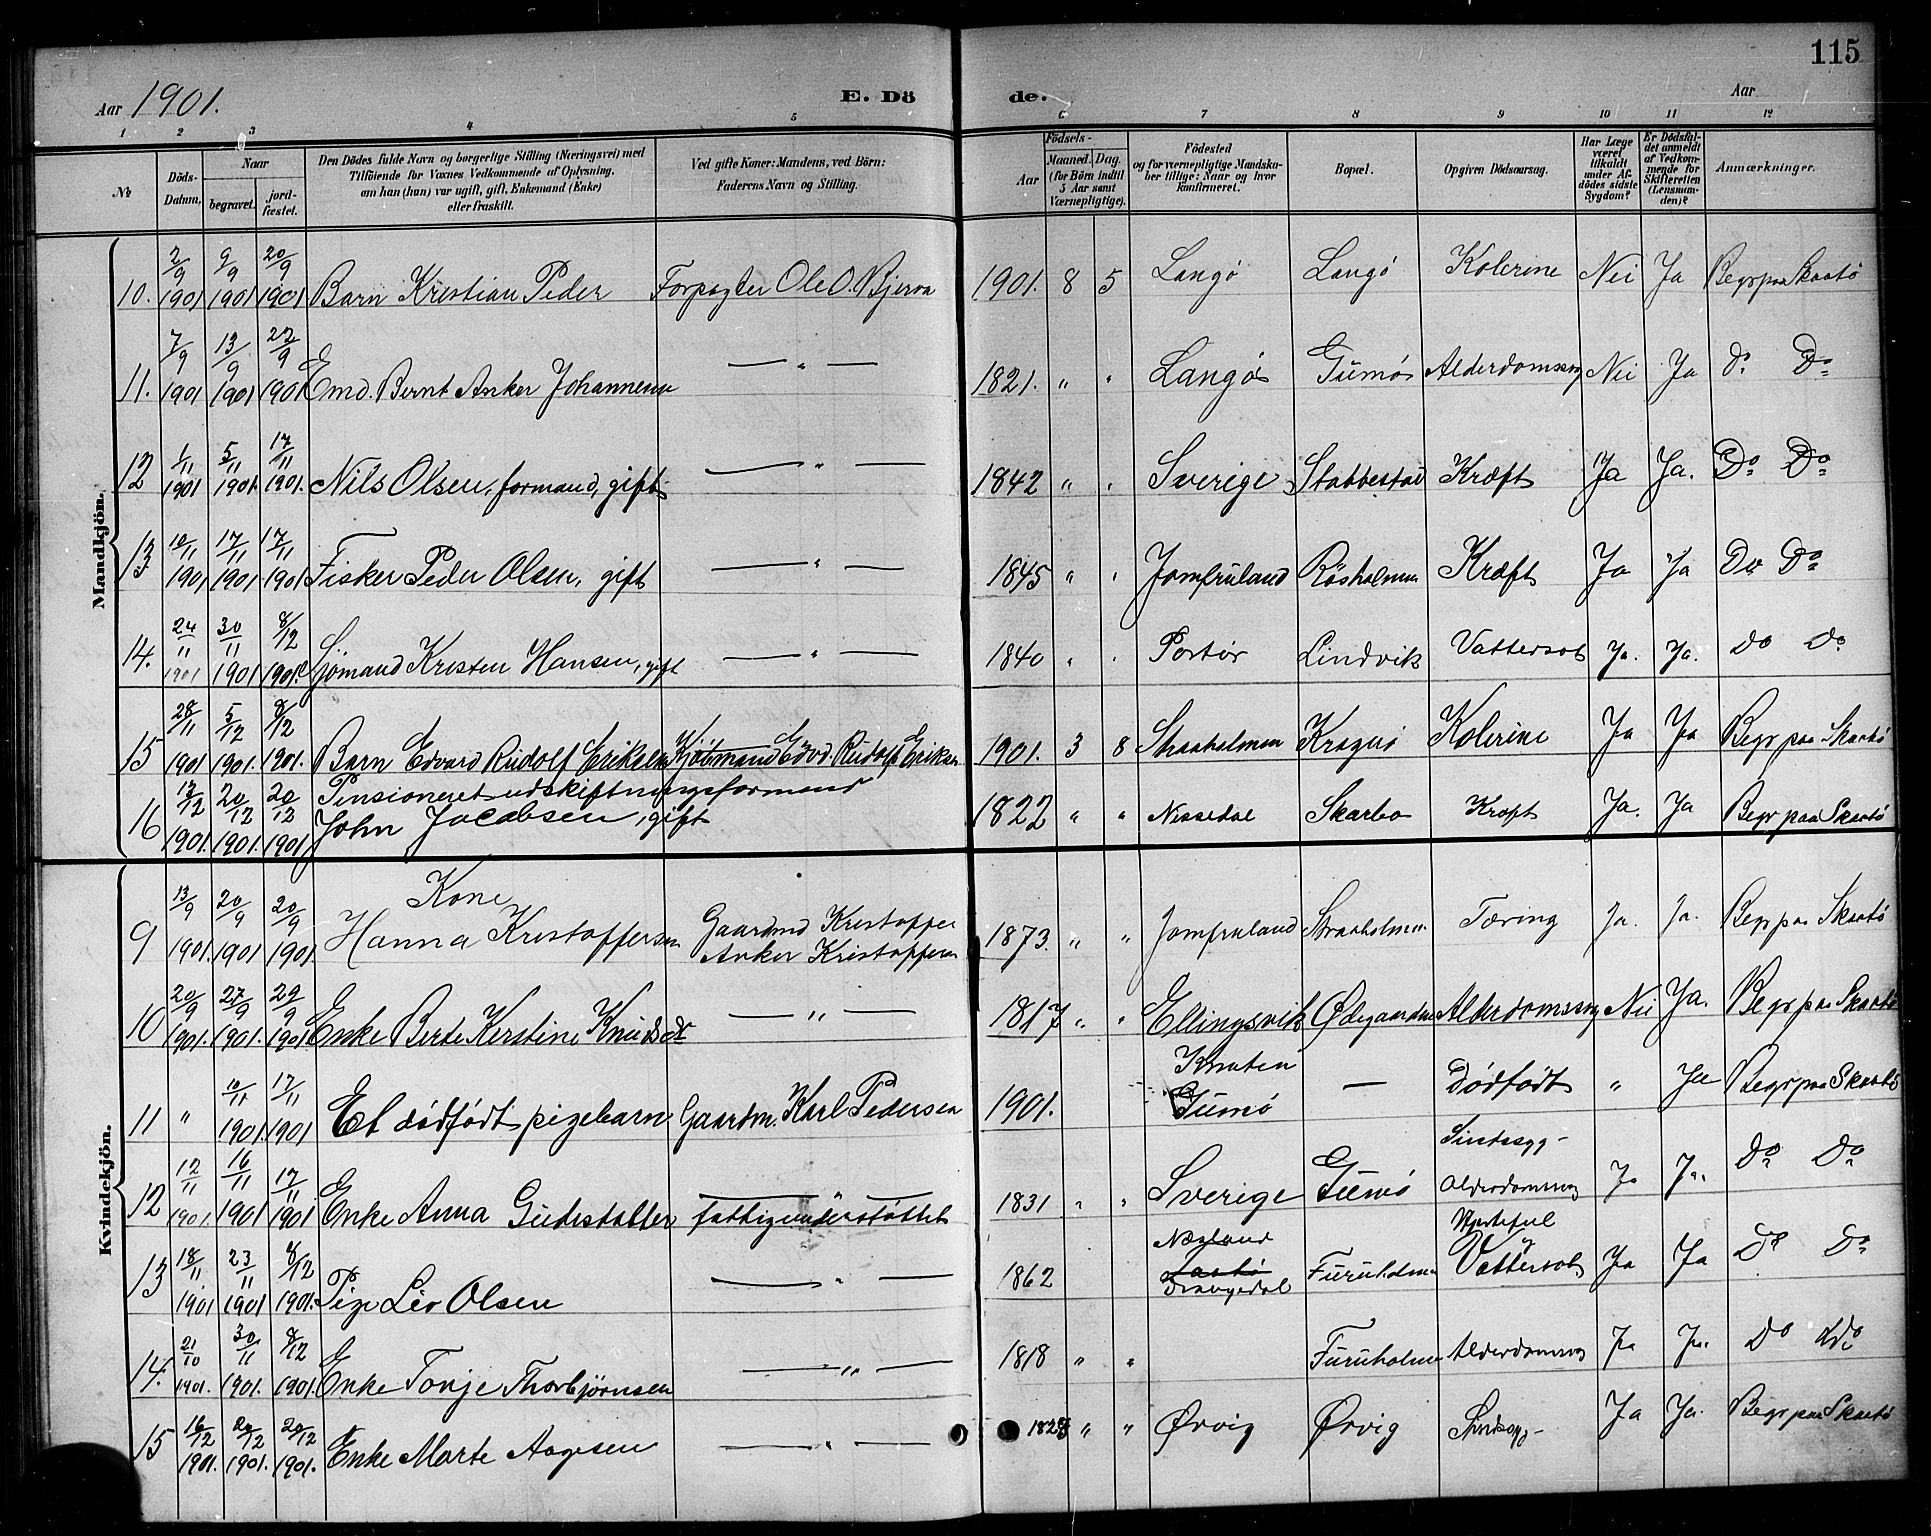 115
Aar 1901. E. Dö de. Aar
1 2 3 4 5 6 7 8 9 10 11 12
No
Döds-Datum.
Naar
begravet.
jord-fæstet.
Den Dödes fulde Navn og borgerlige Stilling (Næringsvei) med
Tilföiende for Voxnes Vedkommende af Oplysning,
om han (hun) var ugift, gift, Enkemand (Enke)
eller fraskilt.
Ved gifte Koner: Mandens, ved Börn:
Faderens Navn og Stilling.
Födsels-
Aar
Maaned. Dag.
(for Börn indtil
5 Aar samt
Værnepligtige).
Födested
og for værnepligtige Mandskaber tillige: Naar og hvor
konfirmeret.
Bopæl.
Opgiven Dödsaarsag.
Har Læge
været
tilkaldt
under Afdödes sidste
Sygdom?
Er Dödsfaldet anmeldt
af Vedkommende for
Skifteretten
(Lensmanden)?
Anmærkninger.
Mandkjön.
10. 2/9 1901 9/9 1901 20/9 1901 Barn Kristian Peder Forpagter Ole O. Bjerva 1901. 8 5 Langö Langö Kolerine Nei Ja Begr paa Skaatö
11. 7/9 1901 13/9 1901 22/9 1901 Emd. Bernt Anker Johannesen — " — 1821. " " Langö Gumö Alderdomssvag Nei Ja Do Do
12 1/11 1901 5/11 1901. 17/11 1901. Nils Olsen, formand, gift — " — 1842 " " Sverige Stabbestad Kræft Ja Ja. Do Do
13 10/11 1901 17/11 1901. 17/11 1901 Fisker Peder Olsen, gift — " — 1845 " " Jomfruland Rösholmen Kræft Ja Ja Do Do
14. 24/11 1901 30/11 1901 8/12 1901. Sjömand Kristen Hansen, gift — " — 1840 " " Portör Lindvik Vattersot Ja. Ja. Do Do
15 28/11 1901 5/12 1901. 8/12 1901. Barn Edvard Rudolf Eriksen Kjöbmand Edv. Rudolf Eriksen 1901. 3 8 Straaholmen Kragerö Kolerine Ja Ja Begr paa Skaatö
16 13/12 1901. 20/12 1901. 20/12 1901 Pensioneret udskiftningsformand
John Jacobsen, gift 1822 " " Nissedal Skarbo Kræft Ja. Ja Begr paa Skaatö
Kvindekjön.
9 13/9 1901. 20/9 1901 20/9 1901. Kone
Hanna Kristoffersen Gaardmd Kristoffer
Anker Kristoffersen 1873. " " Jomfruland Straaholmen Tæring Ja. Ja. Begr paa Skaatö
10 20/9 1901. 27/9 1901. 29/9 1901 Enke Berte Kerstine Knudsdr — " — 1817 " " Ellingsvik Ødegaarden Alderdomssvag Nei Ja. Begr paa Skaatö
11 " 10/11 1901. 17/11 1901 Et dödfödt pigebarn Gaardm. Karl Pedersen 1901.
Gumö — Dödfödt " Ja Begr paa Skaatö
12 12/11 1901. 16/11 1901 17/11 1901 Enke Anna fattigunderstöttet 1831 " " Sverige Gumö Sindssyg-
Alderdomssvag Ja Ja. Do Do
13 18/11 1901 23/11 1901 8/12 1901. Pige Liv Olsen — " — 1862
Drangedal Furuholmen Hjertefeil
Vattersot Ja Ja Do Do
14. 21/10 1901. 30/11 1901. 8/12 1901. Enke Tonje Thorbjørnsen — " — 1818 " " Furuholmen Alderdomssvag Ja Ja. Do Do
15 16/12 1901. 20/12 1901. 20/12 1901. Enke Marte Aagesen — " — " " Ørvig Ørvig Sindssyg- Ja Ja. Begr paa Skaatö